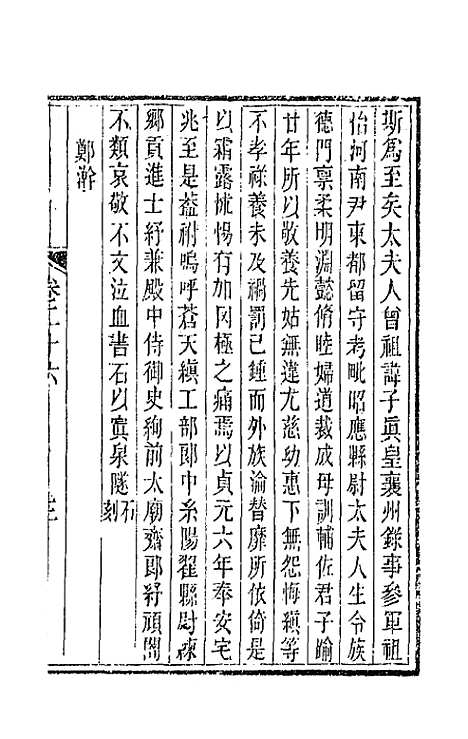 斯爲至矣太夫人曾祖諱子眞皇襄州錄事參軍祖
佁河南尹東都留守考毗昭應縣尉太夫人生令族
德門稟柔明淵懿脩睦婦道裁成母訓輔佐君子踰
廿年所以敬養先姑無違尤慈幼惠下無怨悔縝等
不孝祿養未及禍罰已鍾而外族淪替靡所依倚是
以霜露怵惕有加罔極之痛焉以貞元六年奉安宅
兆至是葢祔嗚呼蒼天縝工部郎中系陽翟縣尉
鄉貢進士紓兼殿中侍御史絢前太廟齋郎紓頑閽
不類哀敬不文泣血書石以寘泉隧石刻
鄭澣
卷二十六